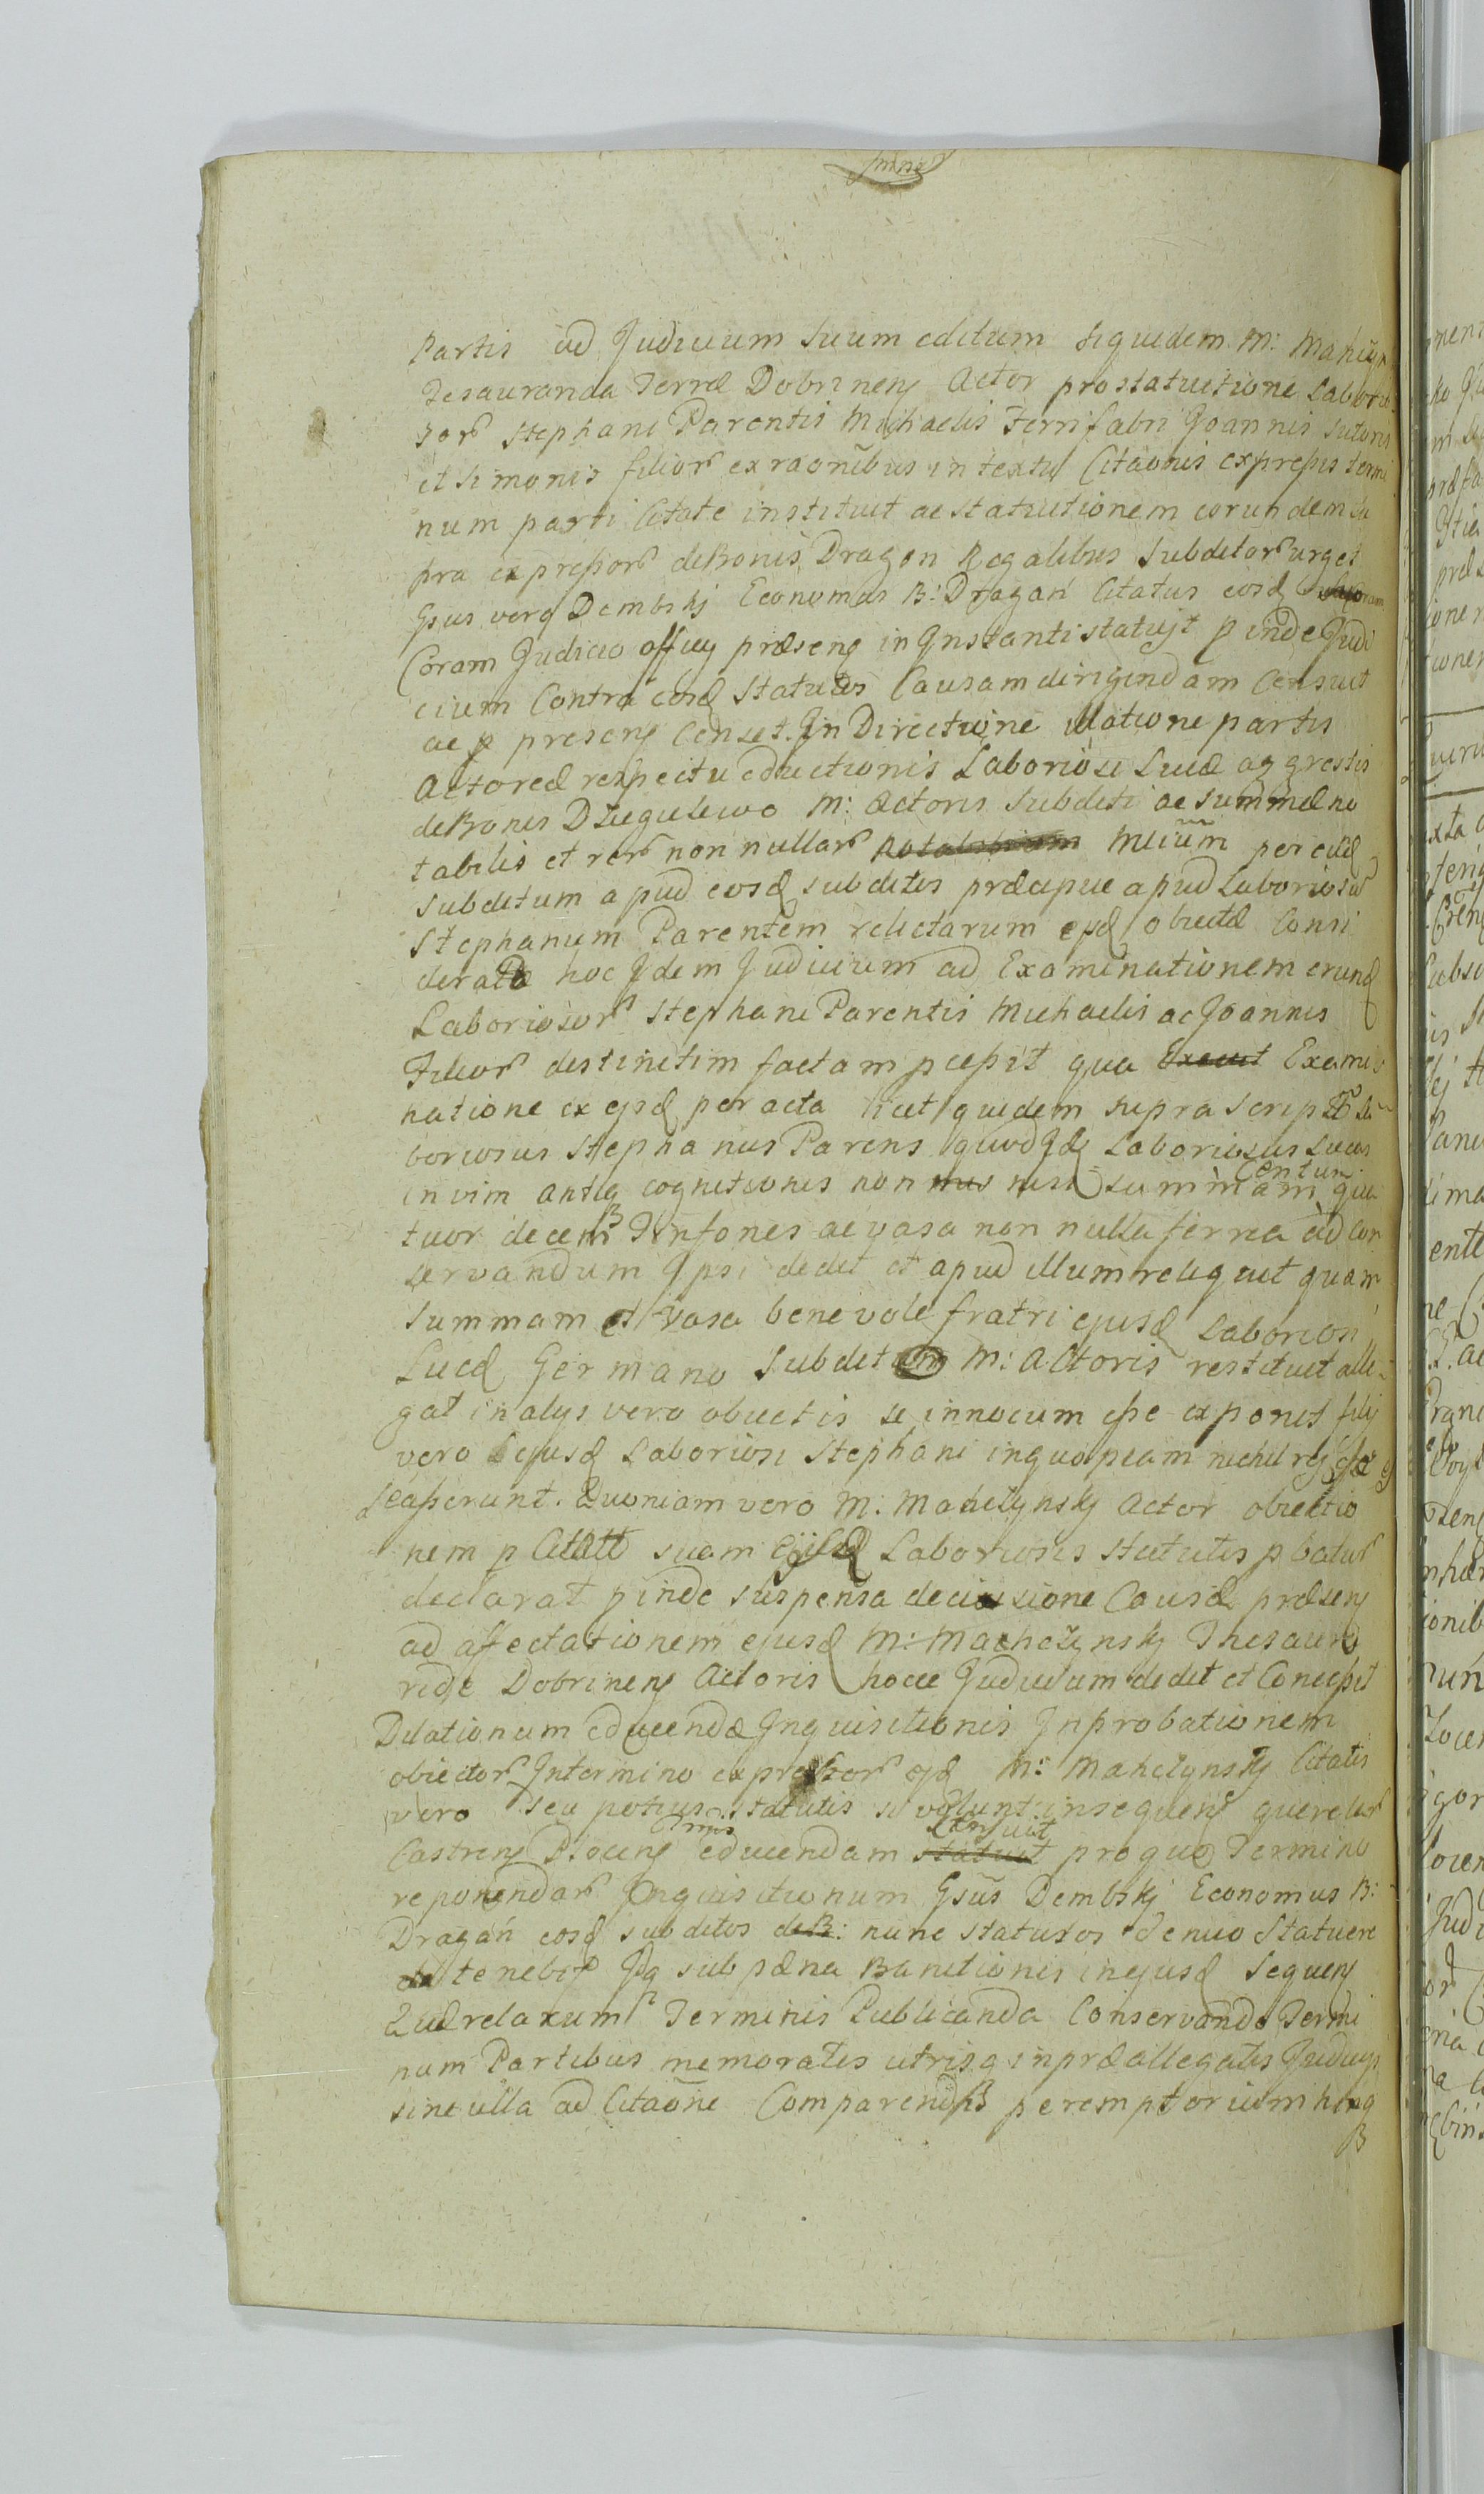 Partis ad Judicium suum editum siquidem M:
Tesauranda Terræ Dobrinens Actor pro statuitione Laborio
sor Stephani Parentis Michaelis Ferrifabri Joannis sutoris
et Simonis filior ex raonibus in textu Citaonis expressis termi
num parti Citatæ instituit ac statuitionem eorundem su
pra expressor de Bonis Dragan Regalibus subditor urget
Gsus vero Dembskj Economus B: Dragan Citatus eosd
Coram Judicio officij præsens in Instanti statuit pinde Judi
cium Contra eosd statutos Causam dirigendam Censuit
ac p presens Censet. In Directione illatione partis
Actoreæ respectu eductionis Laboriosi Lucæ agrestis
de Bonis Dziegielewo M: Actoris subditi ac summæ no
tabilis et rer non nullar per eund
subditum apud eosd subditos præcipue apud Laboriosu
Stephanum Parentem relictarum ejsd objectæ Consi
derata hoc Idem Judicium ad Examinationem eorund
Laboriosor Stephani Parentis Michaelis ac Joannis
Filior distinctim factam pcessit qua Examis
natione ex ejsd peracta licet quidem supra scriptus La
boriosus Stephanus Parens quod Id Laboriosus Lucas
in vim antiq cognitionis non nisi summam Centum qua
tuor decem Tynfones ac vasa non nulla ferrea ad con
servandum Ipsi dedit et apud illum reliquit quam
summam et vasa benevole fratri ejusd Laboriosi
Lucæ Germano subdito M: Actoris restituit alle
gat in alys vero objectis se innocuum esse exponit filij
vero ejusd Laboriosi Stephani in quopiam nichil
se asserunt. Quoniam vero M: Machczynskj Actor objectio
nem p Citatt suam Laboriosis statutis pbatur
declarat pinde suspensa decissione Causæ præsens
ad affectationem ejusd M: Machczynskj Thesaura
ridæ Dobrinens Actoris hocce Judicium dedit et Concessit
Dilationum educendæ Inquisitionis In probationem
objector In termino expressor ejsd M: Machczynskj Citatis
vero seu potius statutis si voluntt in sequens querelar
Castrens Plocens Tmis educendam Censuit pro quo Termino
reponendar Inquisitionum Gsus Dembskj Economus B:
Dragan eosd subditos nunc statutos denuo statuere
tenebit Idq sub pæna Banitionis in ejusd sequens
Quærelarum Terminis Publicanda Conservando Termi
num Partibus memoratis utrisq in præallegatis Judicijs
sine ulla ad Citaone Comparendi peremptorium hocq